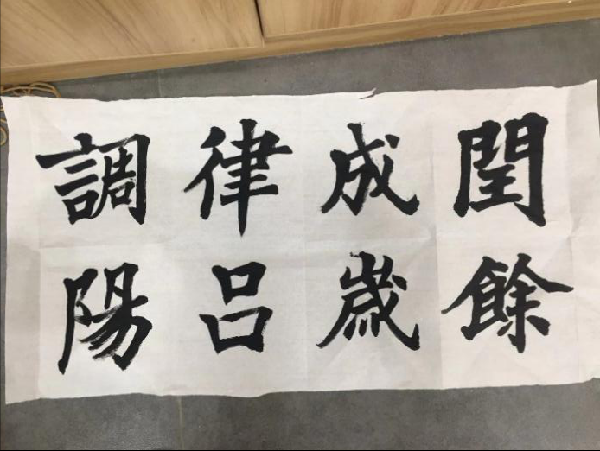 閏餘
成歲
律吕
調陽